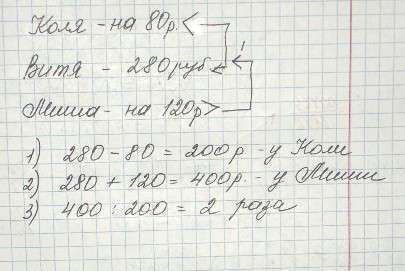 Коля - на 80р. <
Витя - 280руб.
Миша - на 120р >
1) 280 - 80 = 200р. - у Коли
2) 280 + 120 = 400р. - у Миши
3) 400 : 200 = 2 раза